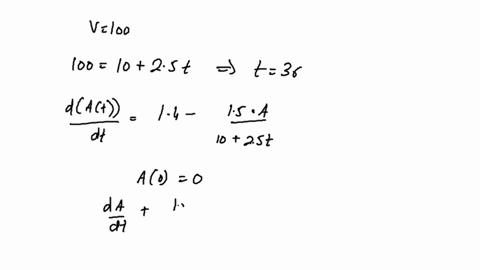 V=100
100 = 10 + 2.5t ⇒ t=36
d(A(t))/dt = 1.4 - 1.5•A/10+25t
A(0) = 0
dA/dt + 1.